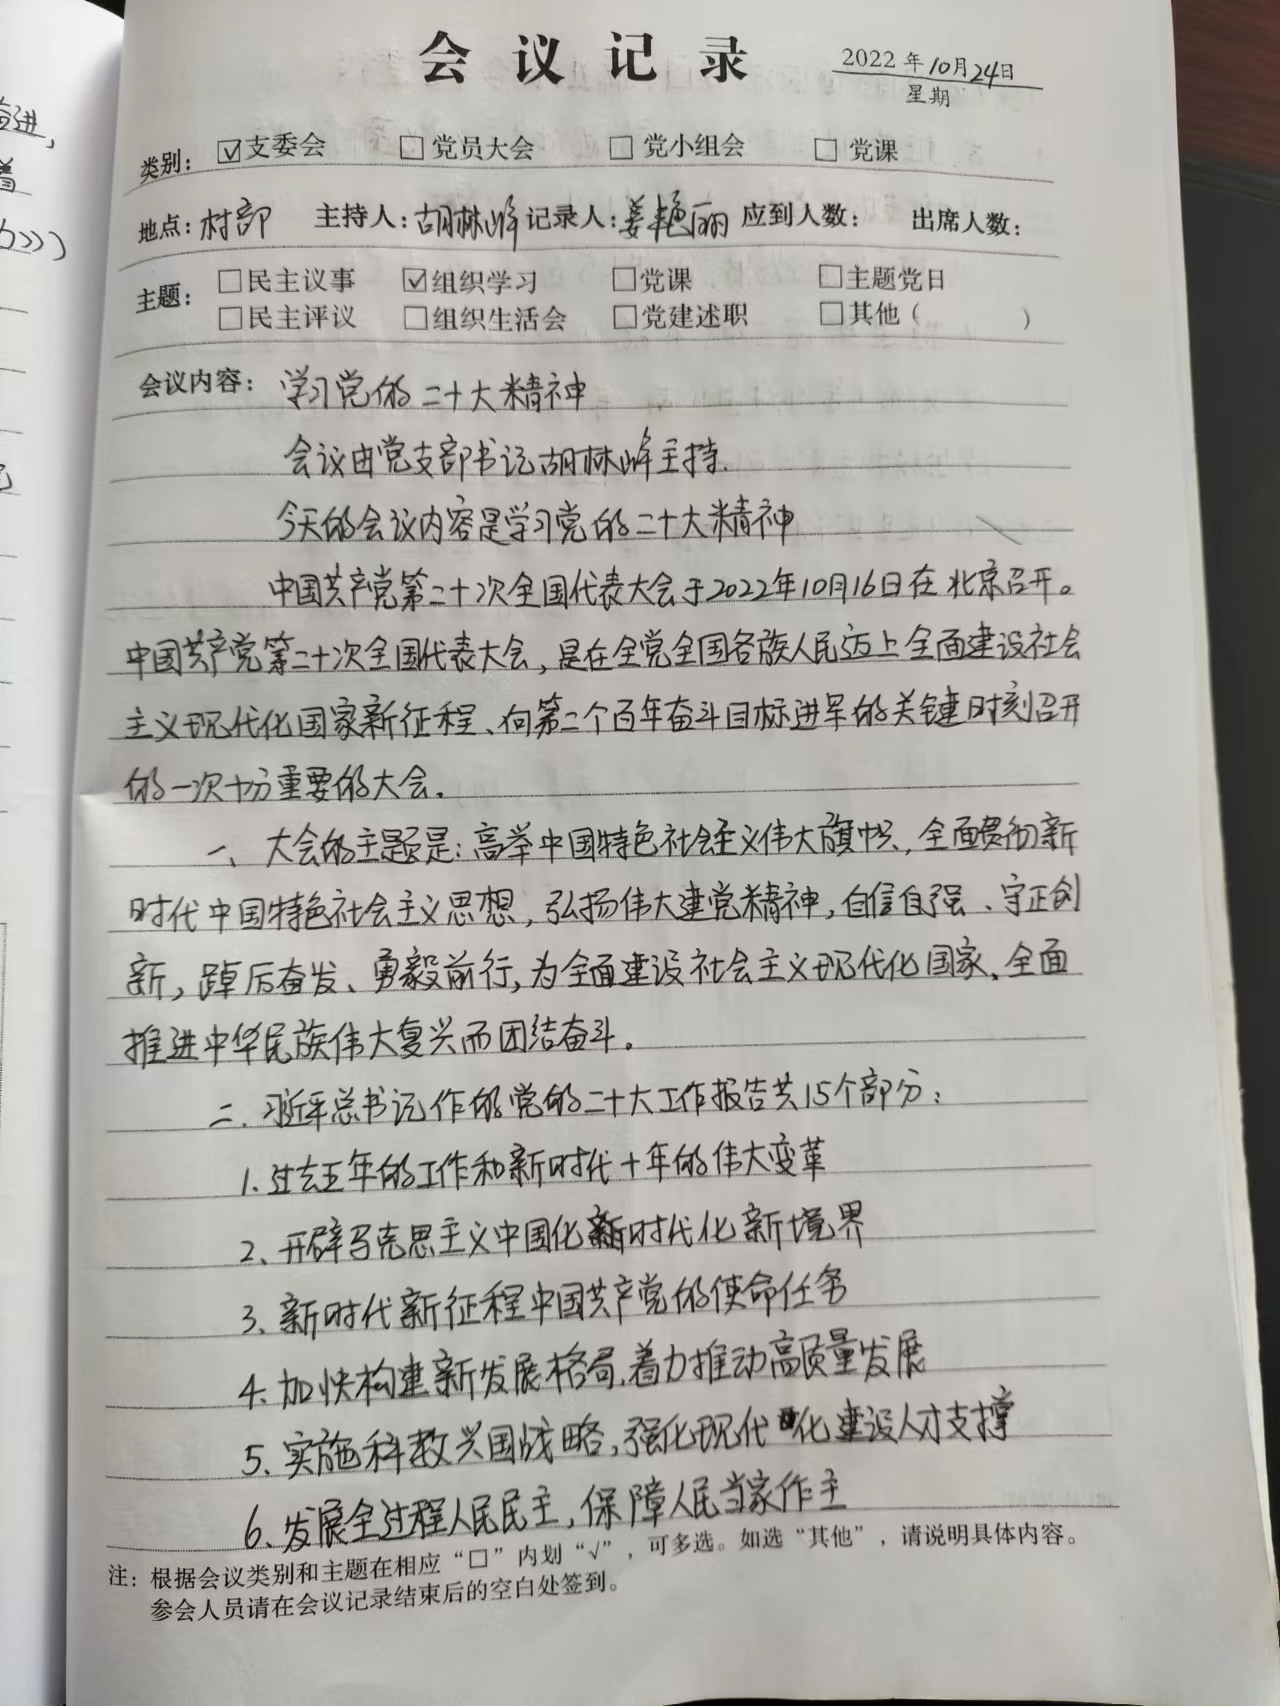 会议记录
2022年10月24日
星期
类别：☑支委会 □党员大会 □党小组会 □党课
地点：村部 主持人：胡林峰 记录人：姜艳丽 应到人数： 出席人数：
主题：□民主议事 ☑组织学习 □党课 □主题党日
□民主评议 □组织生活会 □党建述职 □其他（ ）
会议内容：学习党的二十大精神
会议由党支部书记胡林峰主持.
今天的会议内容是学习党的二十大精神
中国共产党第二十次全国代表大会于2022年10月16日在北京召开。
中国共产党第二十次全国代表大会，是在全党全国各族人民迈上全面建设社会
主义现代化国家新征程、向第二个百年奋斗目标进军的关键时刻召开
的一次十分重要的大会.
一、大会的主题是：高举中国特色社会主义伟大旗帜，全面贯彻新
时代中国特色社会主义思想，弘扬伟大建党精神，自信自强、守正创
新，踔厉奋发、勇毅前行，为全面建设社会主义现代化国家、全面
推进中华民族伟大复兴而团结奋斗。
二.习近平总书记作的党的二十大工作报告共15个部分：
1.过去五年的工作和新时代十年的伟大变革
2、开辟马克思主义中国化新时代化新境界
3、新时代新征程中国共产党的使命任务
4.加快构建新发展格局，着力推动高质量发展
5、实施科教兴国战略，强化现代化建设人才支撑
6、发展全过程人民民主，保障人民当家作主
注：根据会议类别和主题在相应“□”内划“√”，可多选。如选“其他”，请说明具体内容。
参会人员请在会议记录结束后的空白处签到。